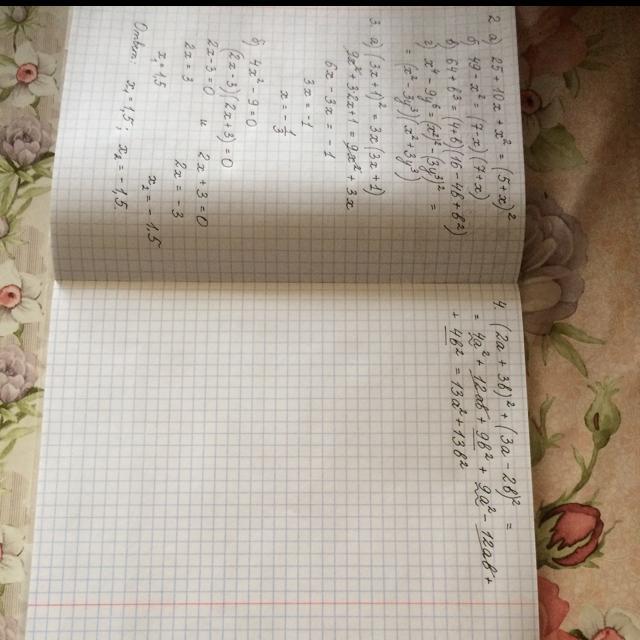 2. а) 25 - 10x + x² = (5+x)²
б) 49 - x² = (7-x)(7+x)
в) 64 + b³ = (4+b)(16-4b+b²)
г) x⁴ - 9y⁶ = (x²)² - (3y³)² =
= (x²-3y³)(x²+3y³)
3. а) (3x+1)² = 3x(3x+1)
9x²+3·2x+1 = 9x²+3x
6x-3x = -1
3x = -1
x = -1/3
б) 4x²-9=0
(2x-3)(2x+3)=0
2x-3=0 и 2x+3=0
2x=3 2x=-3
x₁=1,5 x₂=-1,5
Ответ: x₁=1,5; x₂=-1,5
4. (2a+3b)² + (3a-2b)² =
= 4a² + 12ab + 9b² + 9a² - 12ab +
+ 4b² = 13a² + 13b²